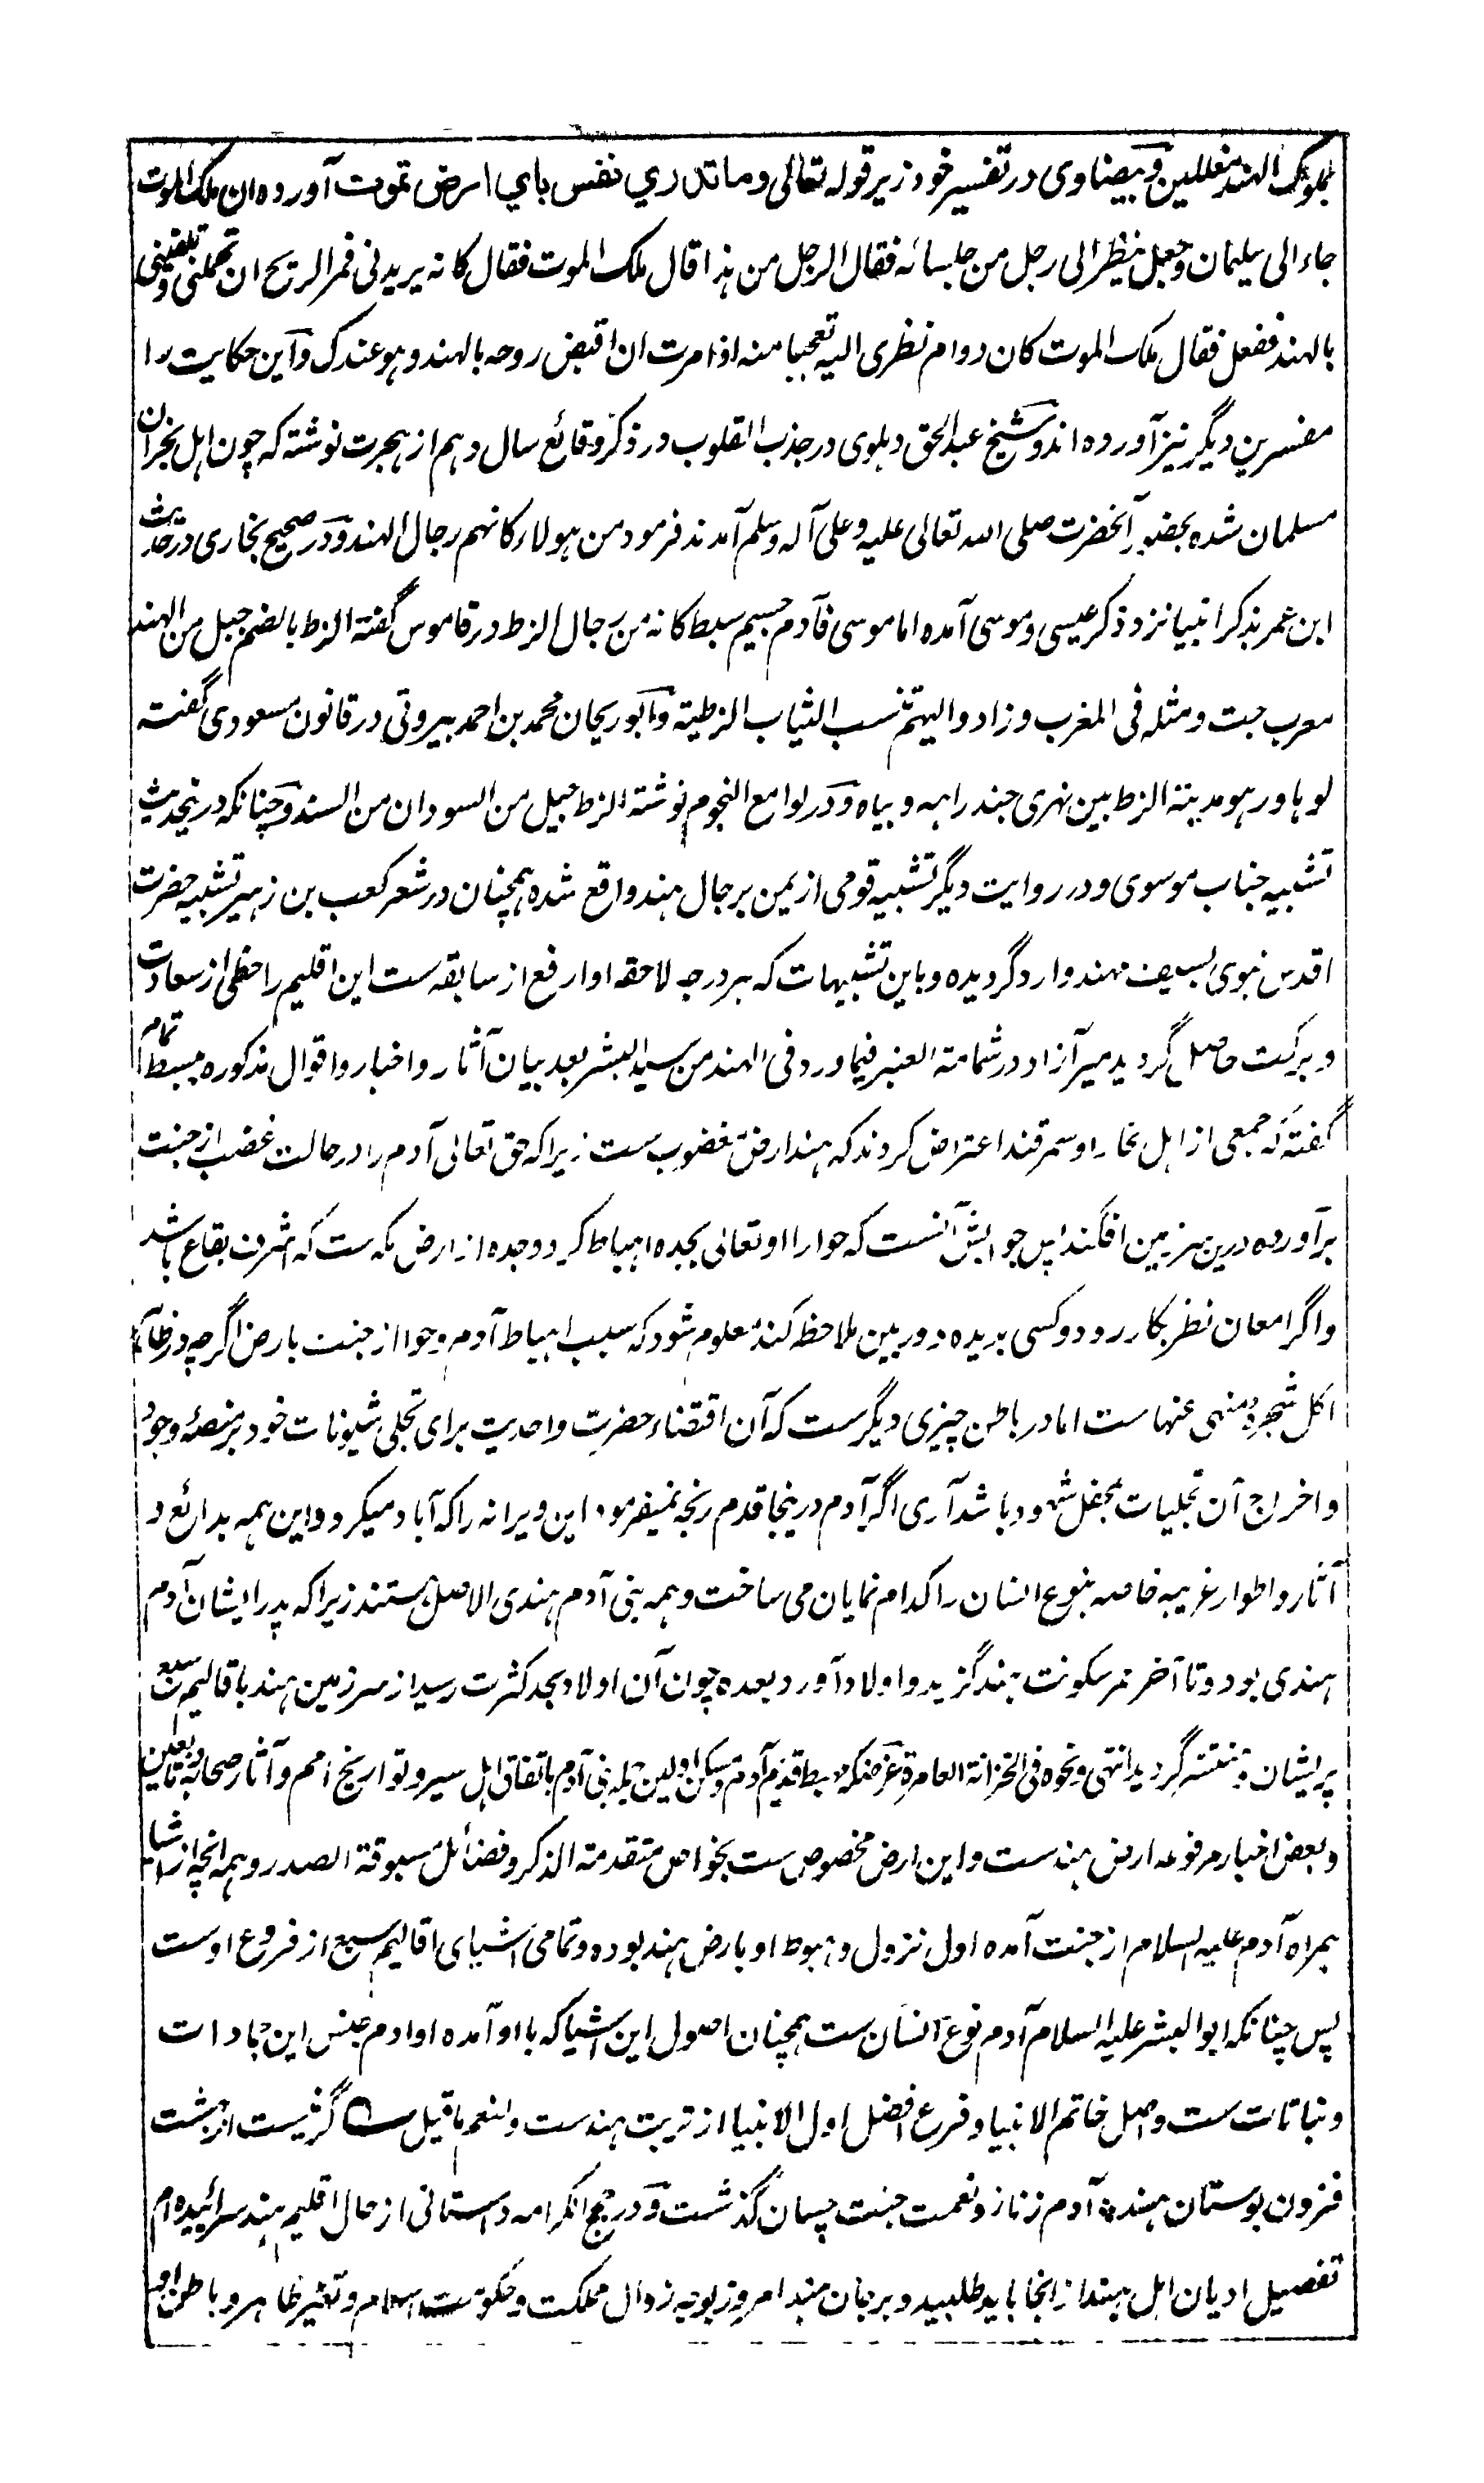 بملوک الهند مغللین و بیضاوی در تفسیر خود زیر قوله تعالی وما تدري نفس باي ارض تموت آورده ان ملک الموت
جاء الی سلیمان وجعل ینظر الی رجل من جلسائه فقال الرجل من هذا قال ملک الموت فقال کانه یریدنی فمر الریح ان تحملنی وتلقینی
بالهند ففعل فقال ملک الموت کان دوام نظری الیه تعجبا منه اذ امرت ان اقبض روحه بالهند وهو عندک و این حکایت را
مفسرین دیگر نیز آورده اند و شیخ عبدالحق دهلوی در جذب القلوب در ذکر وقائع سال دهم از هجرت نوشته که چون اهل نجران
مسلمان شده بحضور آنحضرت صلی الله تعالی علیه وعلی آله وسلم آمدند فرمود من هولاء کانهم رجال الهند و در صحیح بخاری در حدیث
ابن عمر بذکر انبیا نزد ذکر عیسی و موسی آمده اما موسی فآدم جسیم سبط کانه من رجال الزط در قاموس گفته الزط بالضم جیل من الهند
معرب جت ومثله فی المغرب وزاد والیهم تنسب الثیاب الزطیة و ابو ریحان محمد بن احمد بیرونی در قانون مسعودی گفته
لوهاور هو مدینة الزط بین نهری جندراهه وبیاه و در لوامع النجوم نوشته الزط جیل من السودان من السند و چنانکه درینحدیث
تشبیه جناب موسوی و در روایت دیگر تشبیه قومی از یمن برجال هند واقع شده همچنان در شعر کعب بن زهیر تشبیه حضرت
اقدس نبوی بسیف مهند وارد گردیده و باین تشبیهات که هر درجه لاحقه او ارفع از سابقه ست این اقلیم را حظی از سعادت
و برکت حاصل گردید میر آزاد در شمامة العنبر فیما ورد فی الهند من سید البشر بعد بیان آثار و اخبار و اقوال مذکوره ببسط تمام
گفته که جمعی از اهل بخارا و سمرقند اعتراض کردند که هند ارض مغضوب ست زیرا که حق تعالی آدم را در حالت غضب از جنت
برآورده درین سرزمین افگند پس جوابش آنست که حوا را او تعالی بجده اهباط کرد و جده از ارض مکه ست که اشرف بقاع باشد
و اگر امعان نظر بکار رود و کسی بدیده دوربین ملاحظه کند معلوم شود که سبب اهباط آدم و حوا از جنت بارض اگرچه در ظاهر
اکل شجره منهی عنها ست اما در باطن چیزی دیگر ست که آن اقتضاء حضرت واحدیت برای تجلی شیونات خود بر منصه وجود
و اخراج آن تجلیات بمحفل شهود باشد آری اگر آدم درینجا قدم رنجه نمیفرمود این ویرانه را که آباد میکرد و این همه بدائع و
آثار و اطوار غریبه خاصه بنوع انسان را کدام نمایان می ساخت و همه بنی آدم هندی الاصل هستند زیرا که پدر ایشان آدم
هندی بود و تا آخر عمر سکونت بهند گزید و اولاد آورد بعده چون آن اولاد بحد کثرت رسید از سرزمین هند باقالیم سبع
پریشان و منتشر گردید انتهی ونحوه فی الخزانة العامرة غرضکه مهبط قدیم آدم و مسکن اولین جمله بنی آدم باتفاق اهل سیر و تواریخ امم و آثار صحابه و تابعین
و بعض اخبار مرفوعه ارض هند ست و این ارض مخصوص ست بخواص متقدمة الذکر و فضائل مسبوقة الصدر و همه انچه از اشیا
همراه آدم علیه السلام از جنت آمده اول نزول و هبوط او بارض هند بوده و تمامی اشیای اقالیم سبع از فروع اوست
پس چنانکه ابو البشر علیه السلام آدم نوع انسان ست همچنان اصول این اشیا که با او آمده اوادم جنس این جمادات
و نباتات ست و اصل خاتم الانبیا و فرع افضل اول الانبیا از تربت هند ست ولنعم ما قیل گرنیست از بهشت
فزون بوستان هند آدم ز ناز و نعمت جنت چسان گذشت و در حجج الکرامه داستانی از حال اقلیم هند سرائیده ام
تفصیل ادیان اهل هند از انجا باید طلبید و هر چنان هند امروز بوجه زوال مملکت و حکومت اسلام و تغیر ظاهر و باطن او